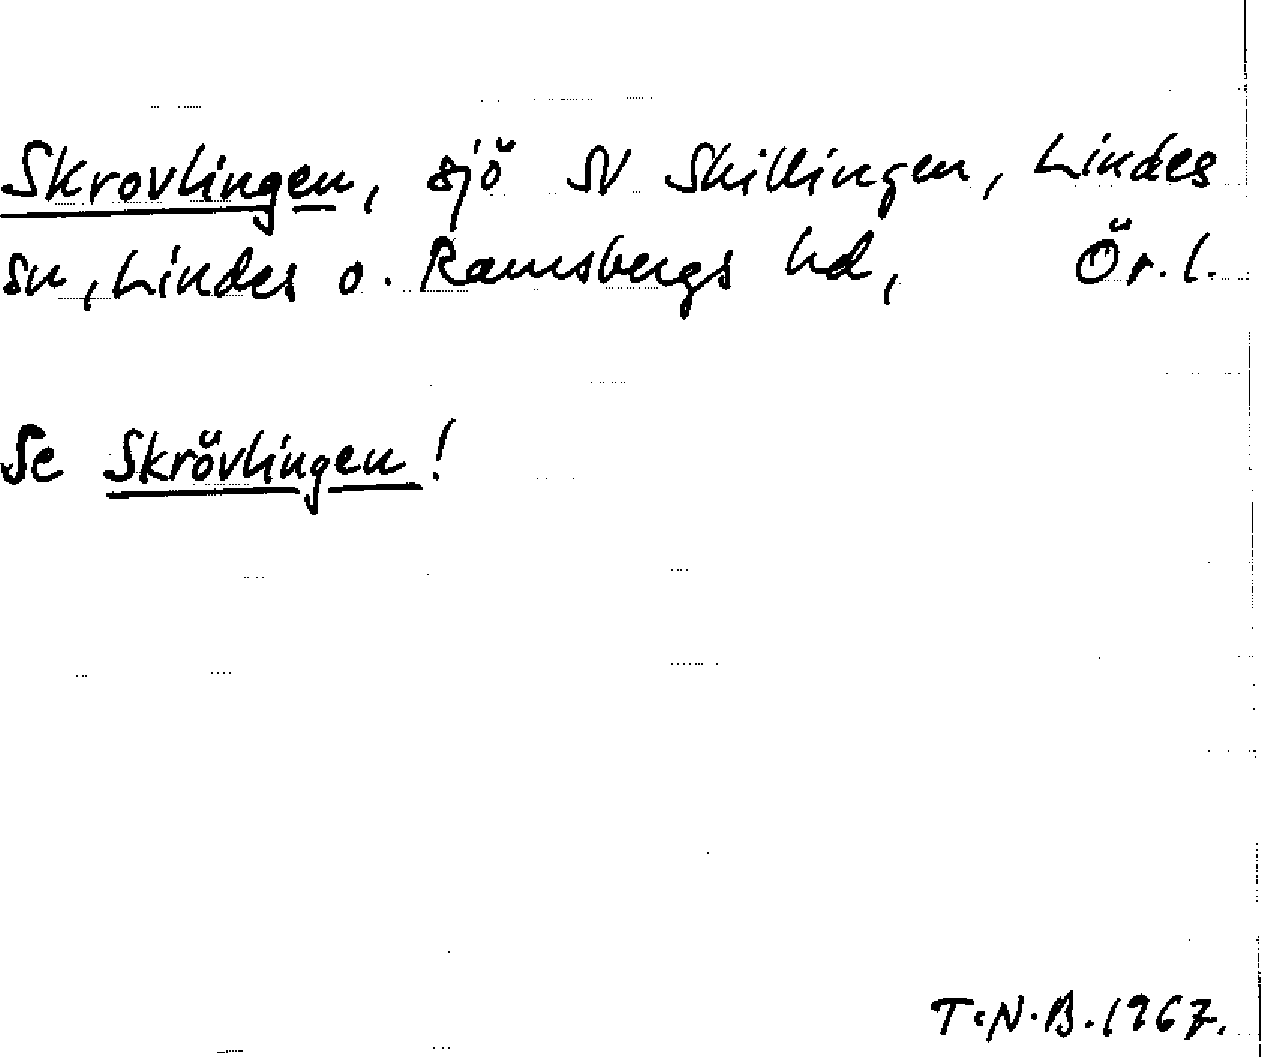 Skrovlingen, sjö SV Skillingen, Lindes
sn, Lindes o. Ramsbergs hd, Ör. l.
Se Skrövlingen!
T.N.B. 1967.